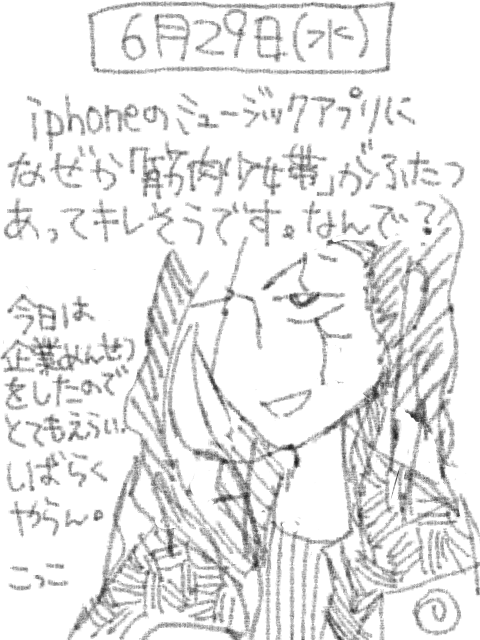 6月29日(水)
iphoneのミュージックアプリに
なぜか「筋肉少女帯」がふたつ
あってキレそうです。なんで?
今日は
企業めんせつ
をしたので
とてもえらい。
しばらく
やらん。